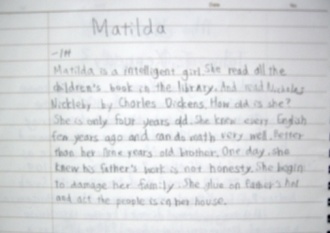 Matilda
Matilda is a intelligent girl. She read all the
children's book in the library. And read Nicholas
Nickleby by Charles Dickens. How old is she?
She is only four years old. She knew every English
few years ago and can do math very well. Better
than her years old brother. One day, she
knew his father's work is not honesty. She begin
to damage her family. She glue on Father's hat
and act the people is in her house.